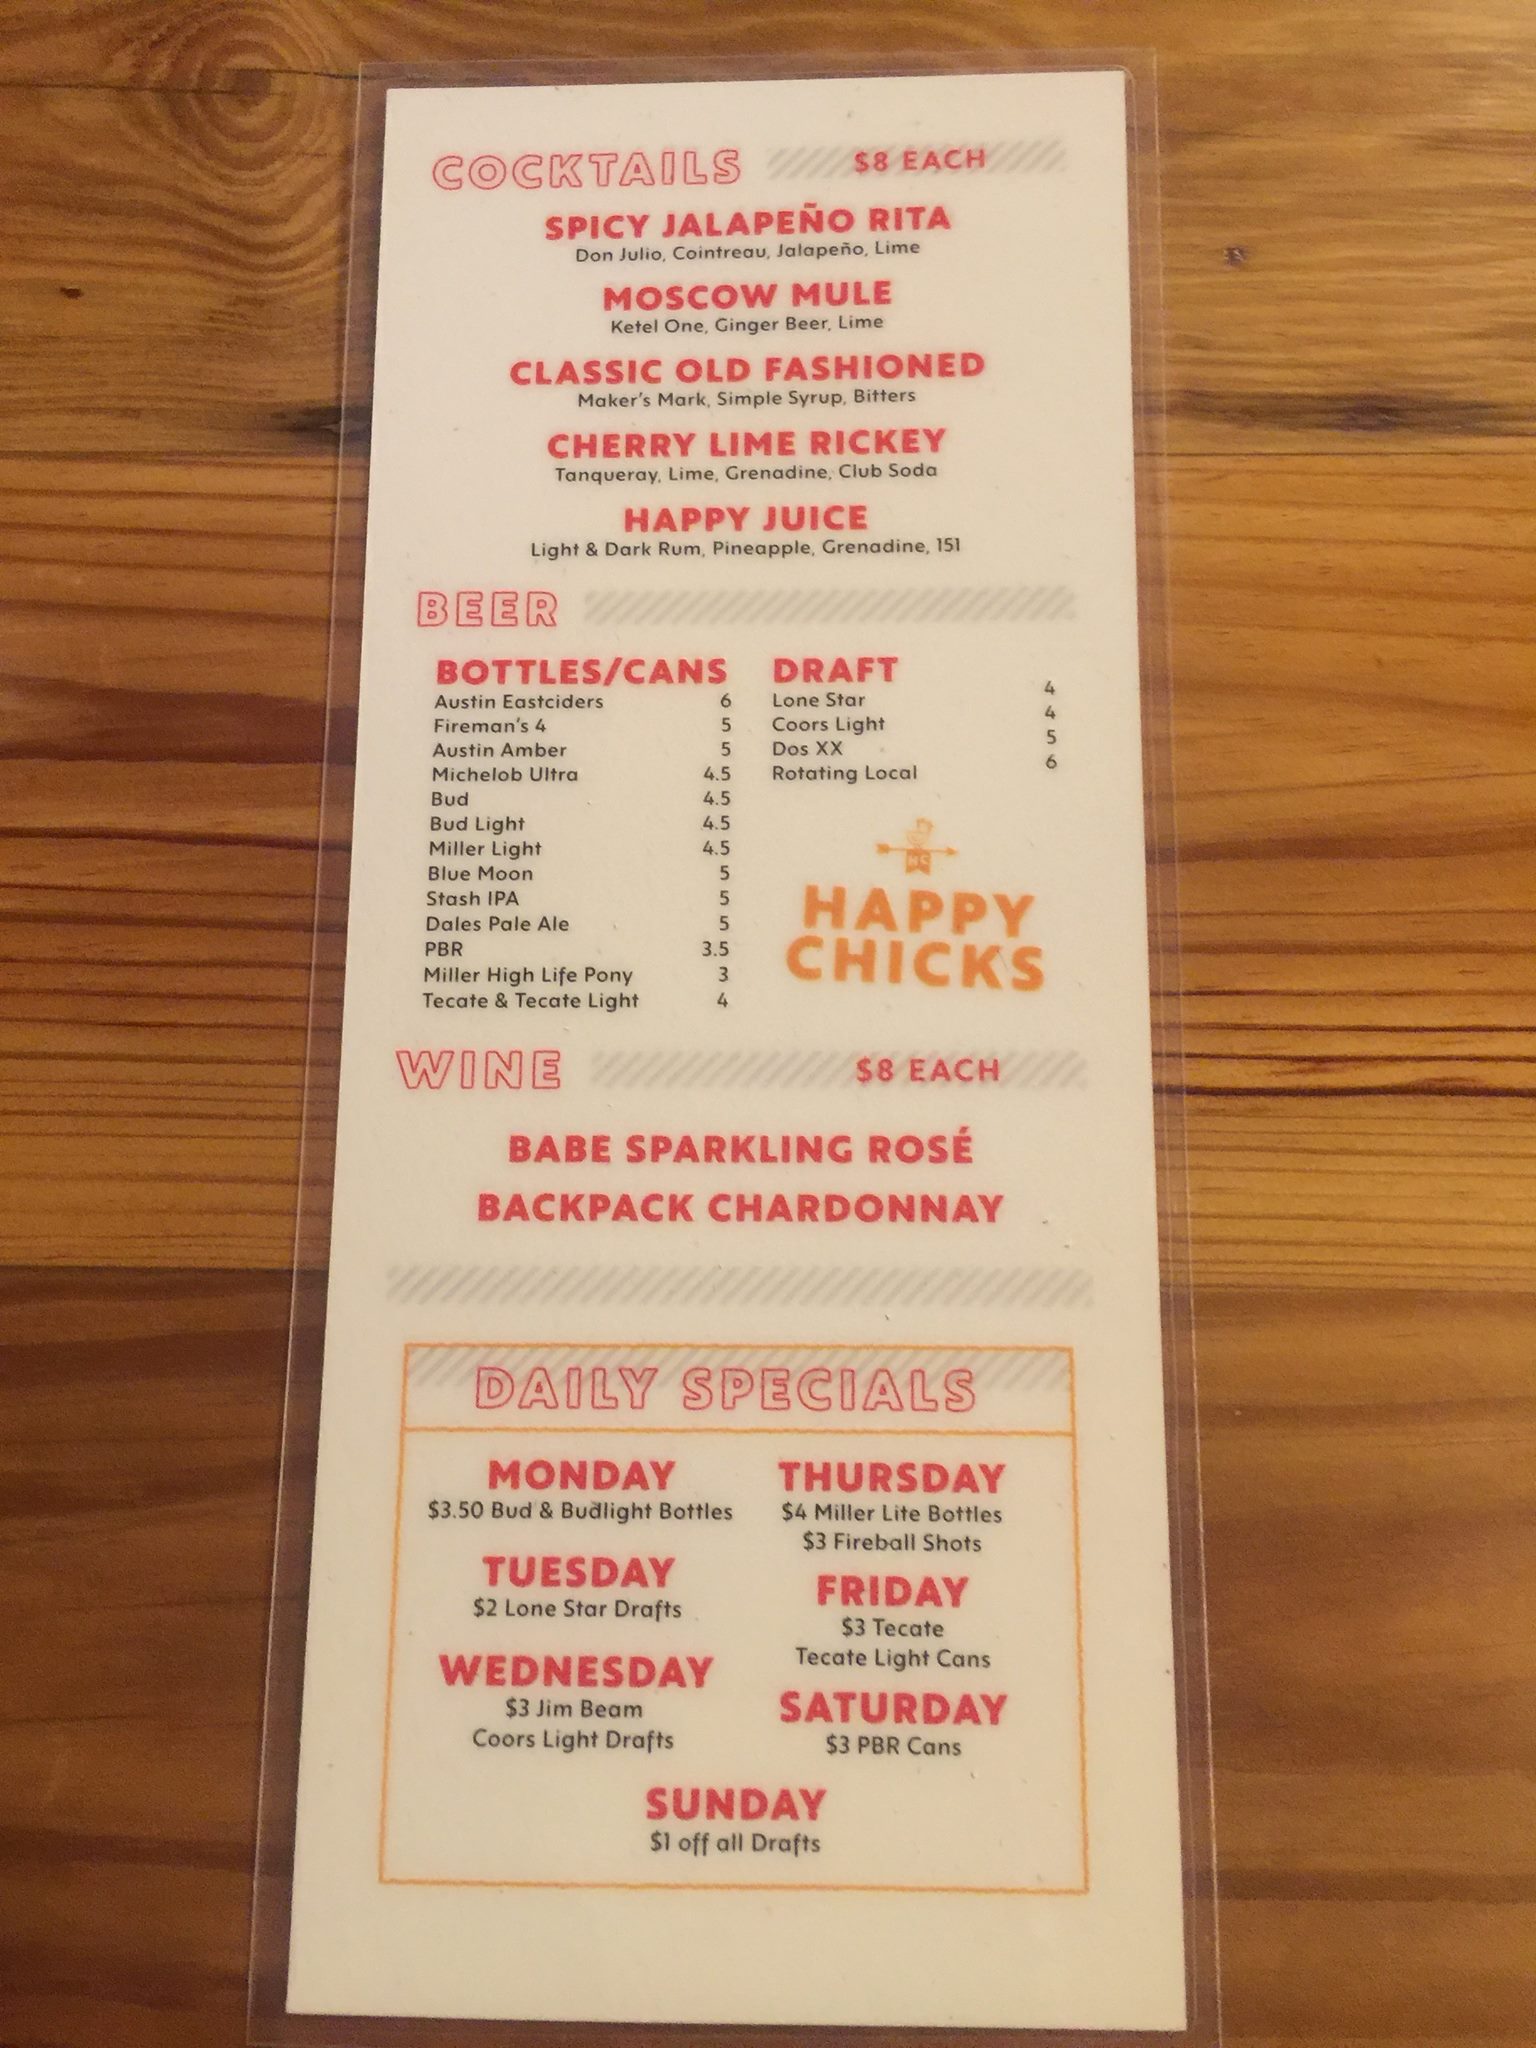 COCKTAILS $8 EACH
SPICY JALAPEÑO RITA
Don Julio, Cointreau, Jalapeño, Lime
MOSCOW MULE
Ketel One, Ginger Beer, Lime
CLASSIC OLD FASHIONED
Maker's Mark, Simple Syrup, Bitters
CHERRY LIME RICKEY
Tanqueray, Lime, Grenadine, Club Soda
HAPPY JUICE
Light & Dark Rum, Pineapple, Grenadine, 151
BEER
BOTTLES/CANS
Austin Eastciders 6
Fireman's 4 5
Austin Amber 5
Michelob Ultra 4.5
Bud 4.5
Bud Light 4.5
Miller Light 4.5
Blue Moon 5
Stash IPA 5
Dales Pale Ale 5
PBR 3.5
Miller High Life Pony 3
Tecate & Tecate Light 4
DRAFT
Lone Star 4
Coors Light 4
Dos XX 5
Rotating Local 6
HC
HAPPY
CHICKS
WINE $8 EACH
BABE SPARKLING ROSÉ
BACKPACK CHARDONNAY
DAILY SPECIALS
MONDAY
$3.50 Bud & Budlight Bottles
TUESDAY
$2 Lone Star Drafts
WEDNESDAY
$3 Jim Beam
Coors Light Drafts
THURSDAY
$4 Miller Lite Bottles
$3 Fireball Shots
FRIDAY
$3 Tecate
Tecate Light Cans
SATURDAY
$3 PBR Cans
SUNDAY
$1 off all Drafts